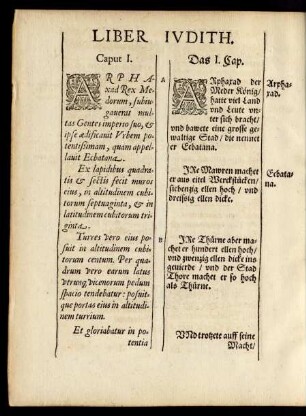 LIBER IVDITH.
Caput I.
ARPHA
xad Rex Me
dorum, subiu
gauerat mul
tas Gentes imperio suo, &
ipse ædificauit Vrbem po
tentissimam, quam appel
lauit Ecbatana.
Ex lapidibus quadra
tis & sectis fecit muros
eius, in altitudinem cubi
torum septuaginta, & in
latitudinem cubitorum tri
ginta.
Turres vero eius po
suit in altitudinem cubi
torum centum. Per qua
drum vero earum latus
vtrumq; vicenorum pedum
spacio tendebatur: posuit-
que portas eius in altitudi
nem turrium.
Et gloriabatur in po
tentia
Das I. Cap.
A
ARphaxad der
Meder König/
hatte viel Land
vnd Leute vn-
ter sich bracht/
vnd bawete eine grosse ge-
waltige Stad / die nennet
er Ecbatana.
JRe Mawren machet
er aus eitel Werckstücken/
siebentzig ellen hoch / vnd
dreissig ellen dicke.
B
JRe Thürne aber ma-
chet er hundert ellen hoch/
vnd zwenzig ellen dicke ins
gevierde / vnd der Stad
Thore machet er so hoch
als Thürne.
VNd trotzete auff seine
Macht/
Arpha-
xad.
Ecbata-
na.